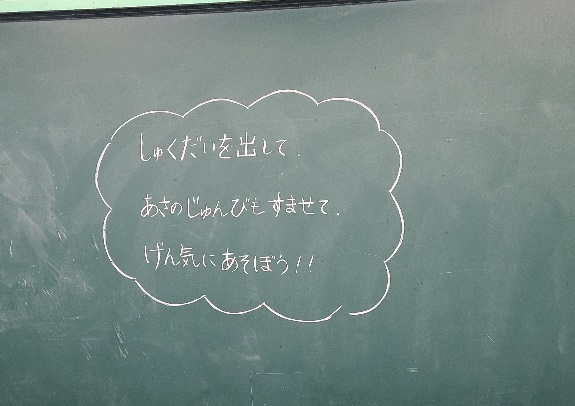 しゅくだいを出して、
あさのじゅんびもすませて、
げん気にあそぼう!!